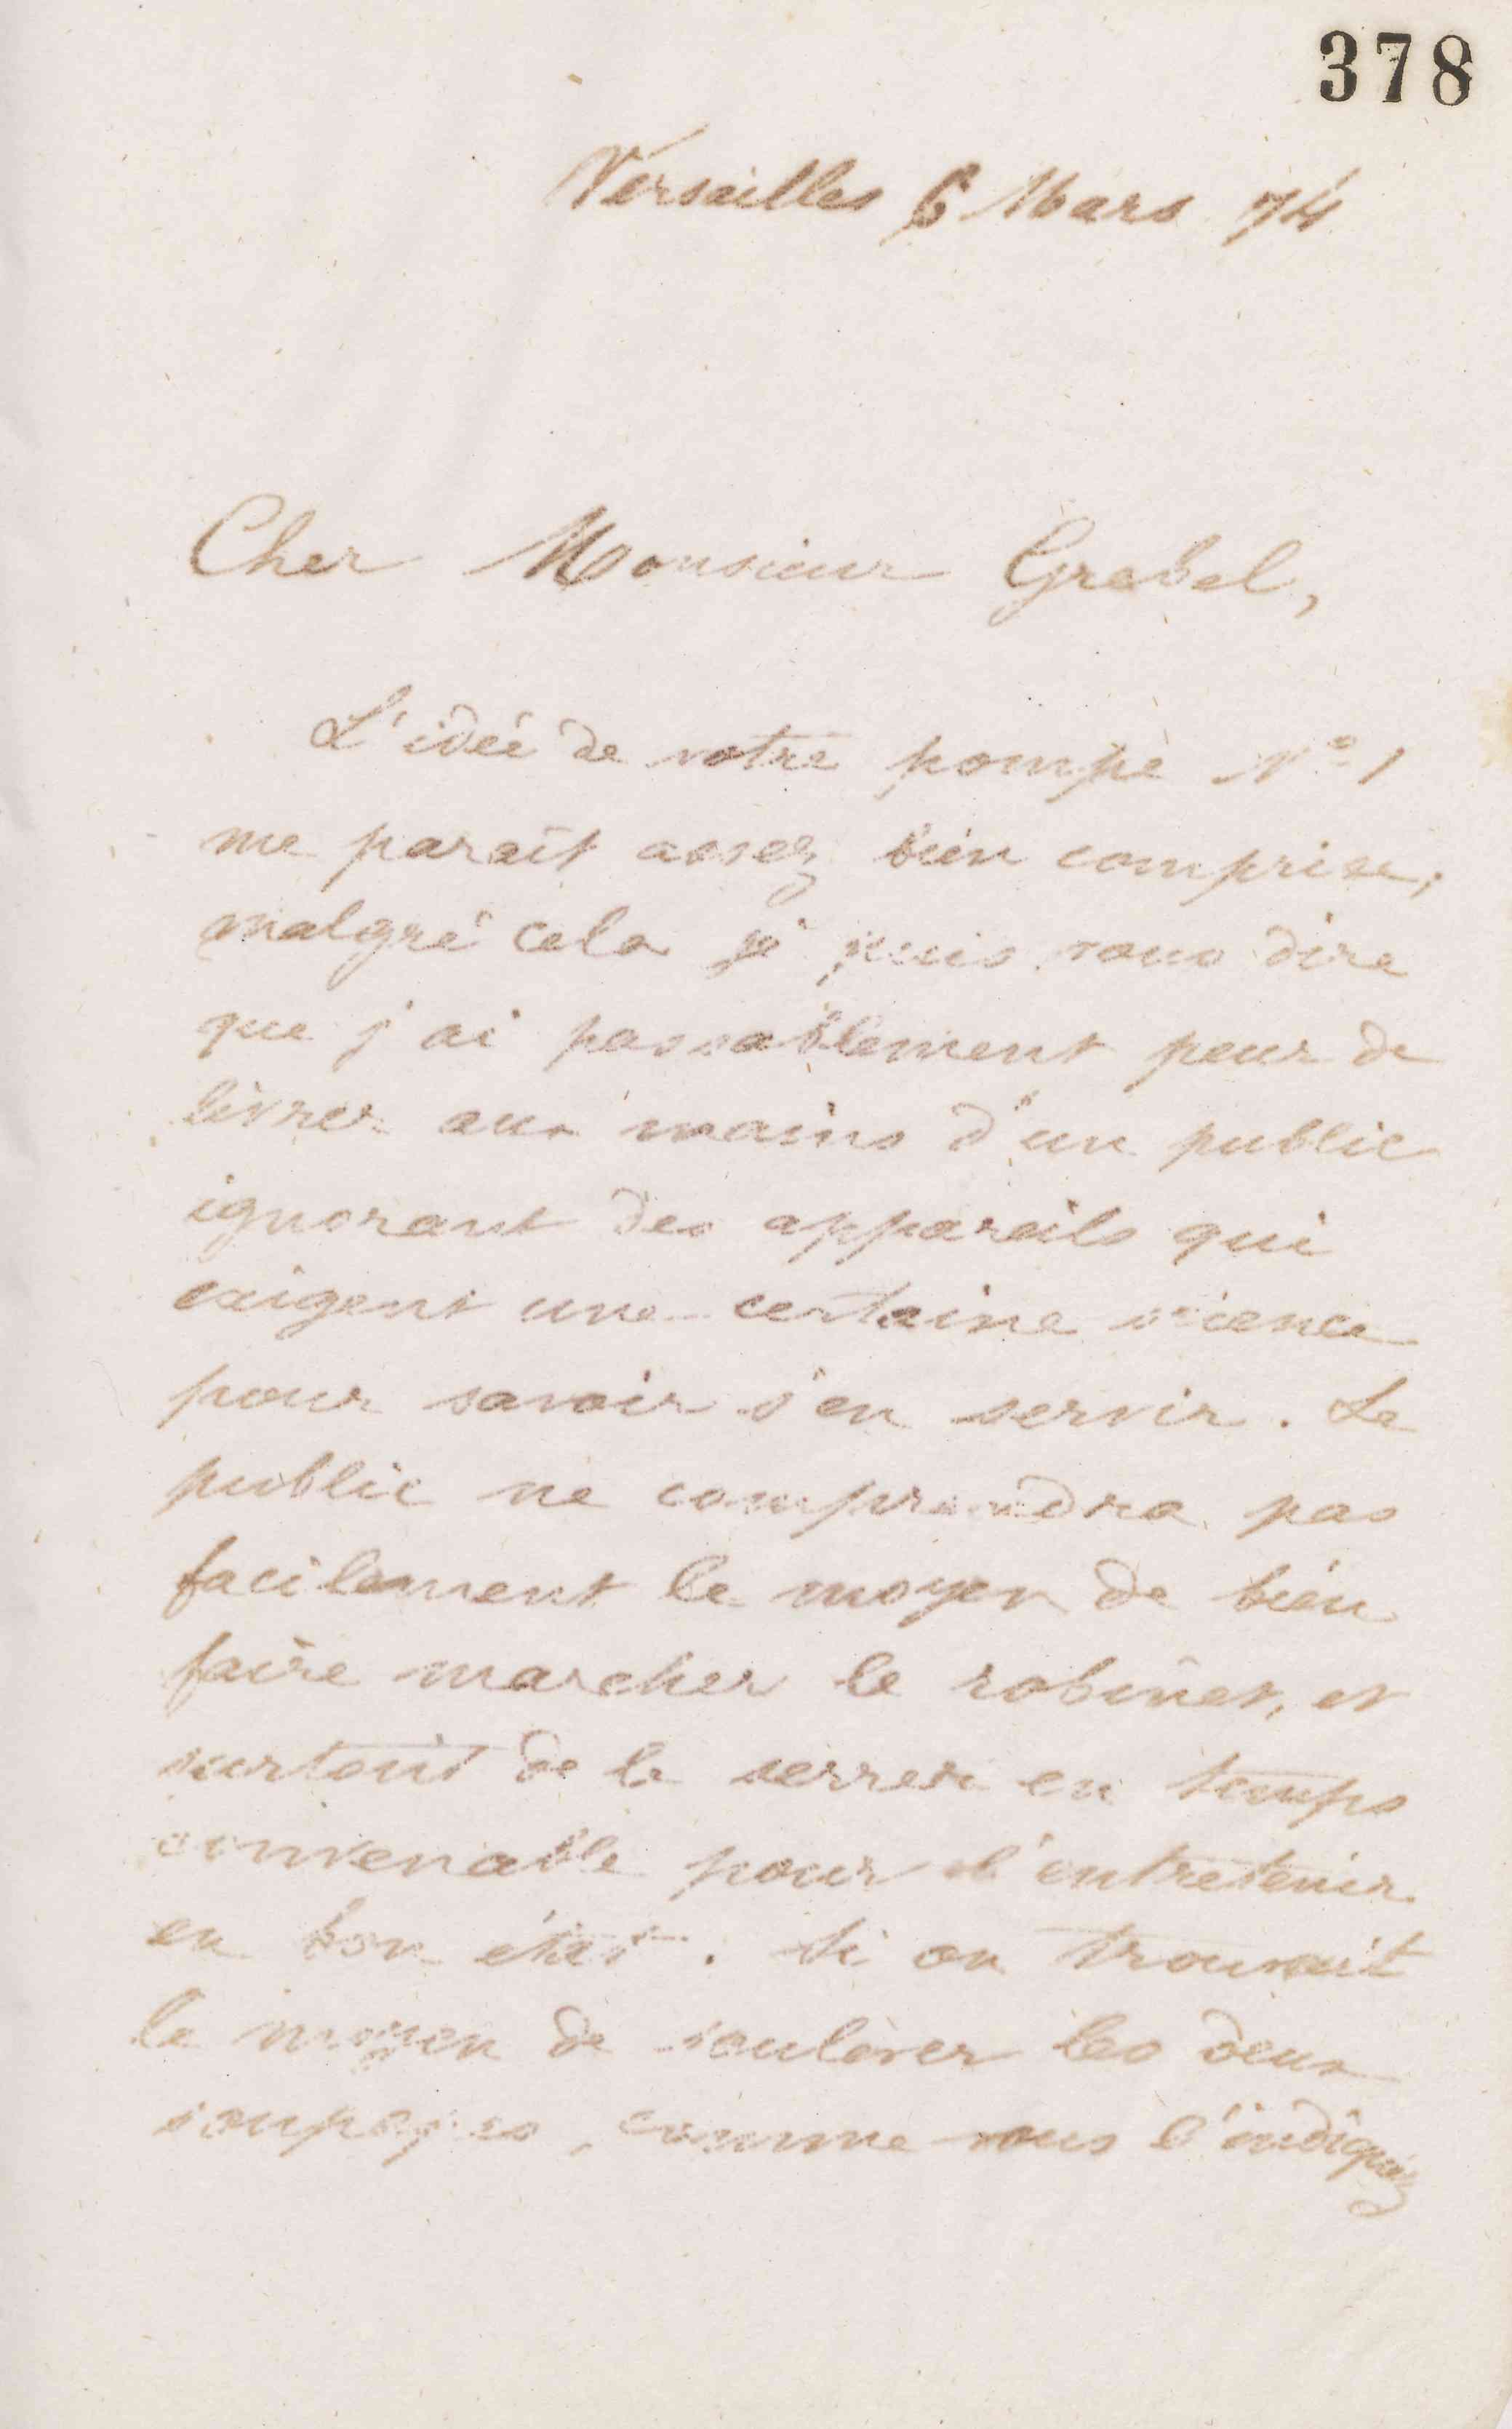 378
Versailles 6 Mars 74
Cher Monsieur Grebel,
L'idée de votre pompe N° 1
me paraît assez bien comprise;
malgré cela je puis vous dire
que j'ai passablement peur de
livrer aux mains d'un public
ignorant des appareils qui
exigent une certaine science
pour savoir s'en servir. Le
public ne comprendra pas
facilement le moyen de bien
faire marcher le robinet, et
surtout de le serrer en temps
convenable pour l'entretenir
en bon état. Si on trouvait
le moyen de soulever les deux
soupapes, comme vous l'indiquez